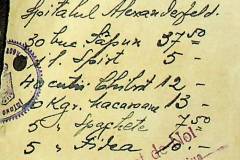 Spitalul Alexandrfeld.
30 buc. Săpun 37 50
1 l. Spirt 5 -
40 cutii Chibrit 12 -
10 kgr. macaroane 13 -
5 " Spaghete 7 50
5 " Fidea 10 -